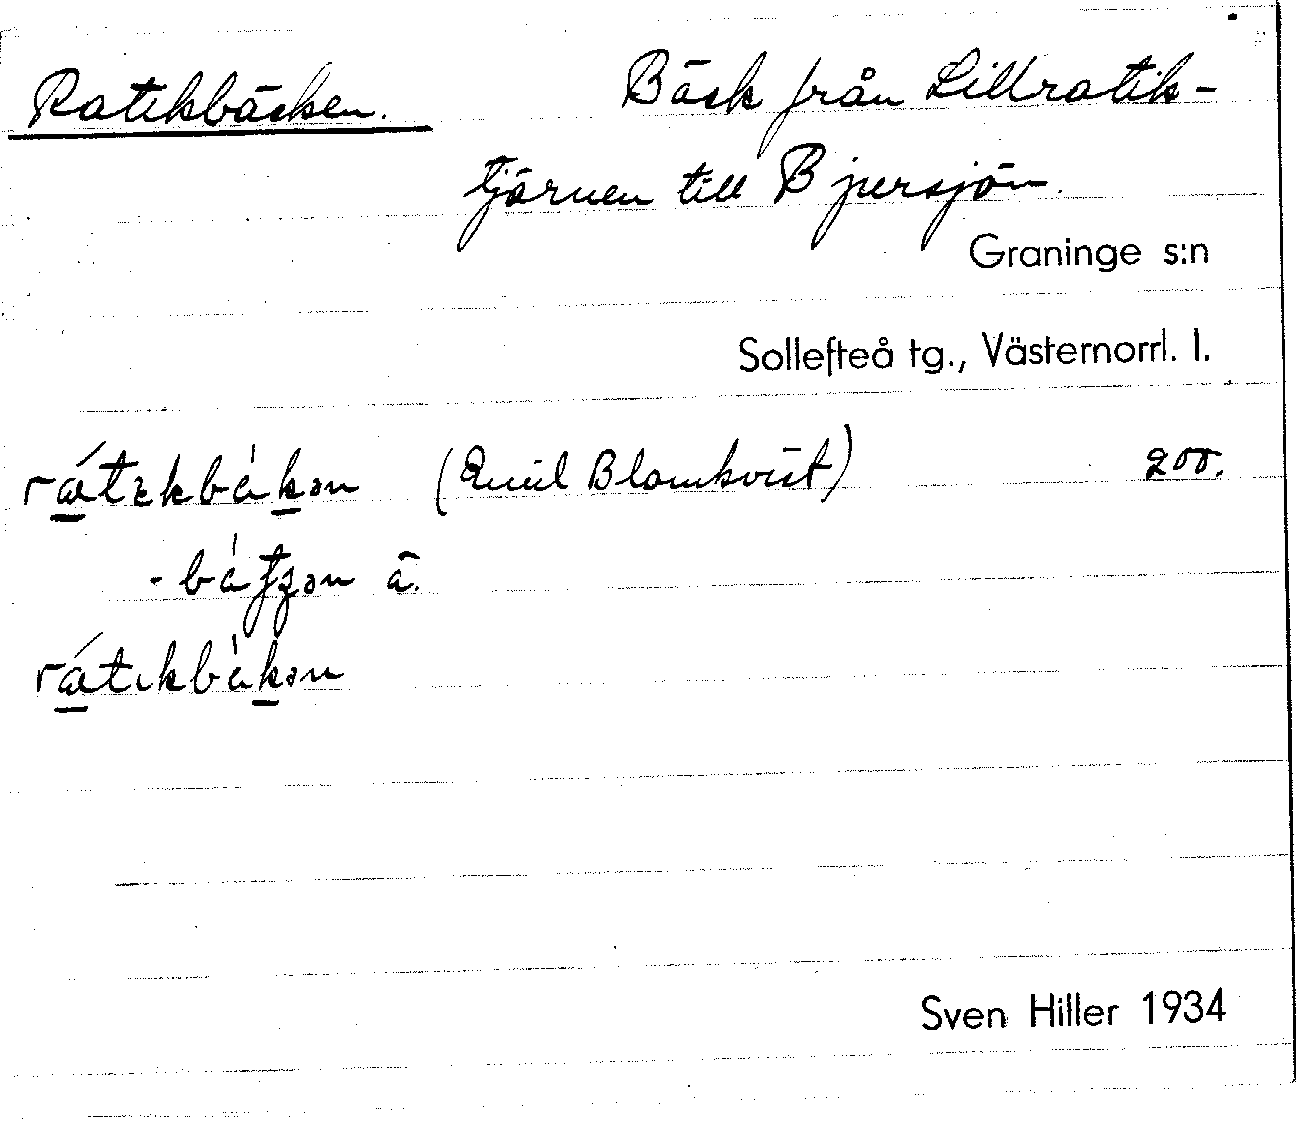 Ratikbäcken. Bäck från Lillratik-
tjärnen till Bjursjön.
Graninge s:n
Sollefteå tg., Västernorrl. l.
(Emil Blomkvist) 200.
ä.
Sven Hiller 1934